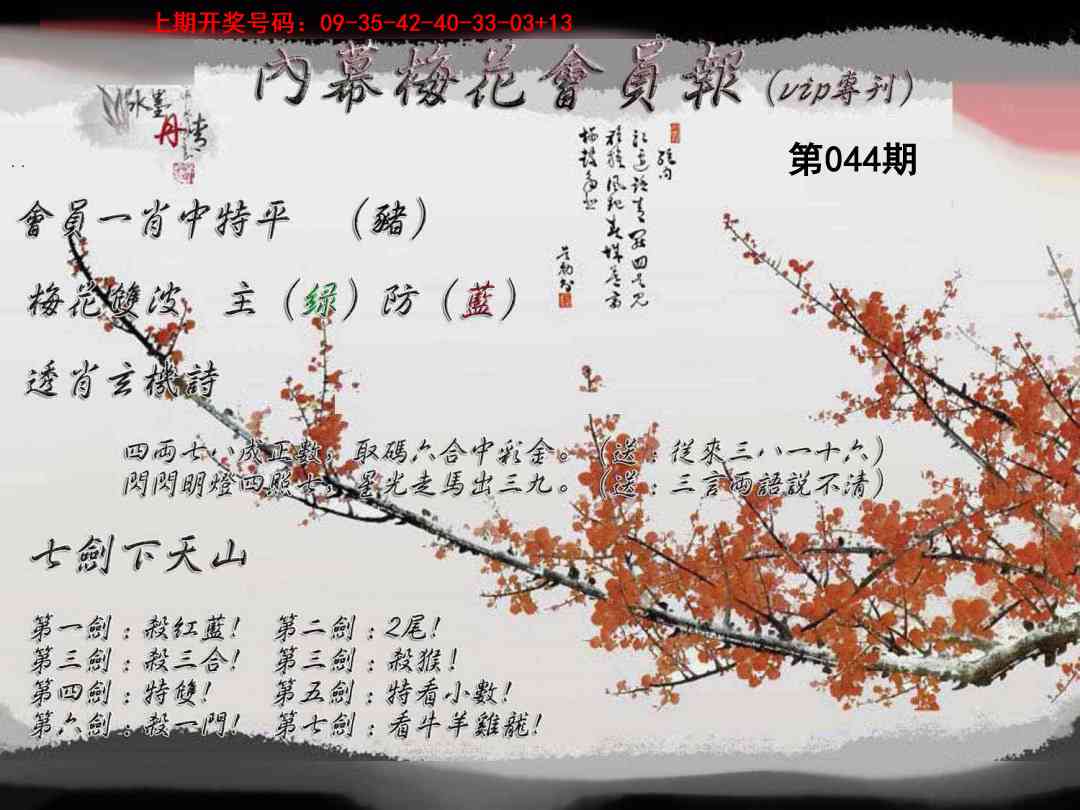 上期开奖号码：09-35-42-40-33-03+13
內幕梅花會員報（vip專刊）
水墨
丹青
第044期
會員一肖中特平　（豬）
梅花雙波　主（绿）防（藍）
透肖玄機詩
四両七八成正數，取碼六合中彩金。（送：從來三八一十六）
閃閃明燈四照七，星光走馬出三九。（送：三言両語説不清）
七劍下天山
第一劍：殺紅藍！　第二劍：2尾！
第三劍：殺三合！　第三劍：殺猴！
第四劍：特雙！　第五劍：特看小數！
第六劍：殺一門！　第七劍：看牛羊雞龍！